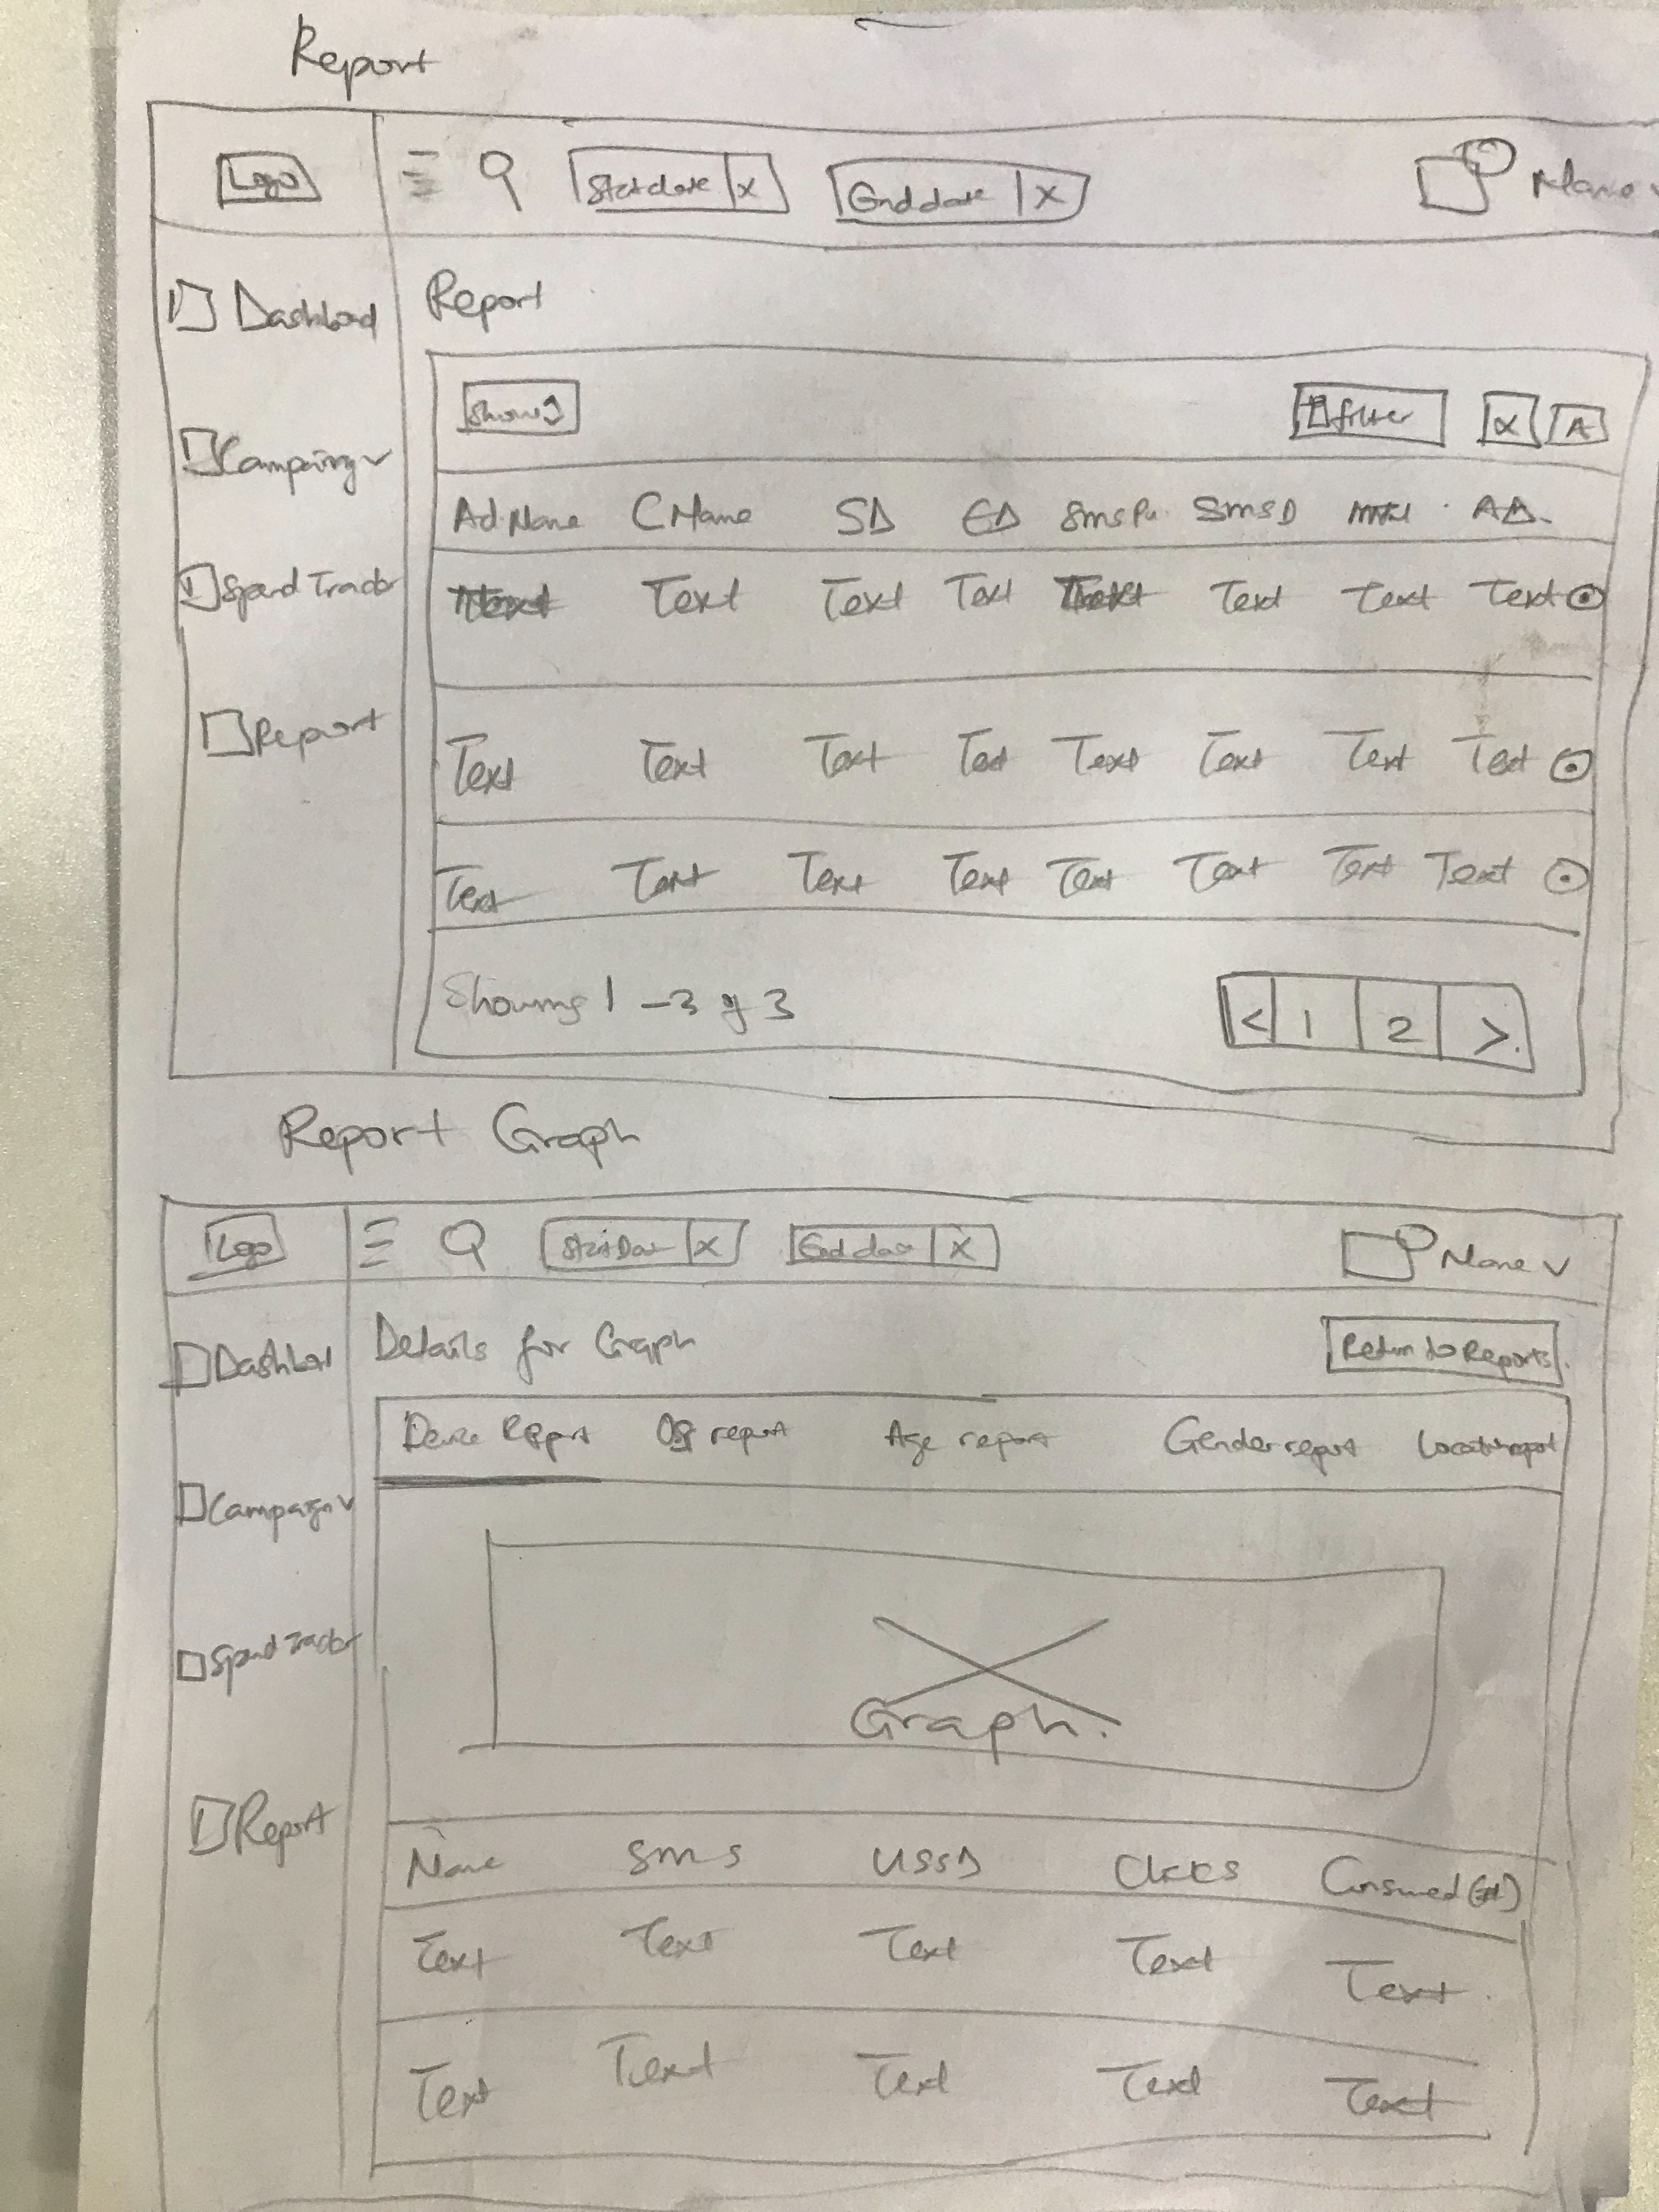 Report
Logo Start date X End date X Name
Dashboad
Report
Show
filter X A
Campaing
Ad Name C Name SD ED Sms D AD.
Spend Tracker
Text Text Text Text Text Text Text
Report
Text Text Text Text Text Text Text Text
Text Text Text Text Text Text Text Text
Showing 1 - 3 of 3 < 1 2 >
Report Graph
Logo Start Date X End date X Name
Dashbord
Details for Graph Return to Reports
Device Report OS report Age report Gender report Location report
Campaign
Graph.
Spend Tracker
Report
Name SMS USSD Clicks Consumed
Text Text Text Text Text
Text Text Text Text Text